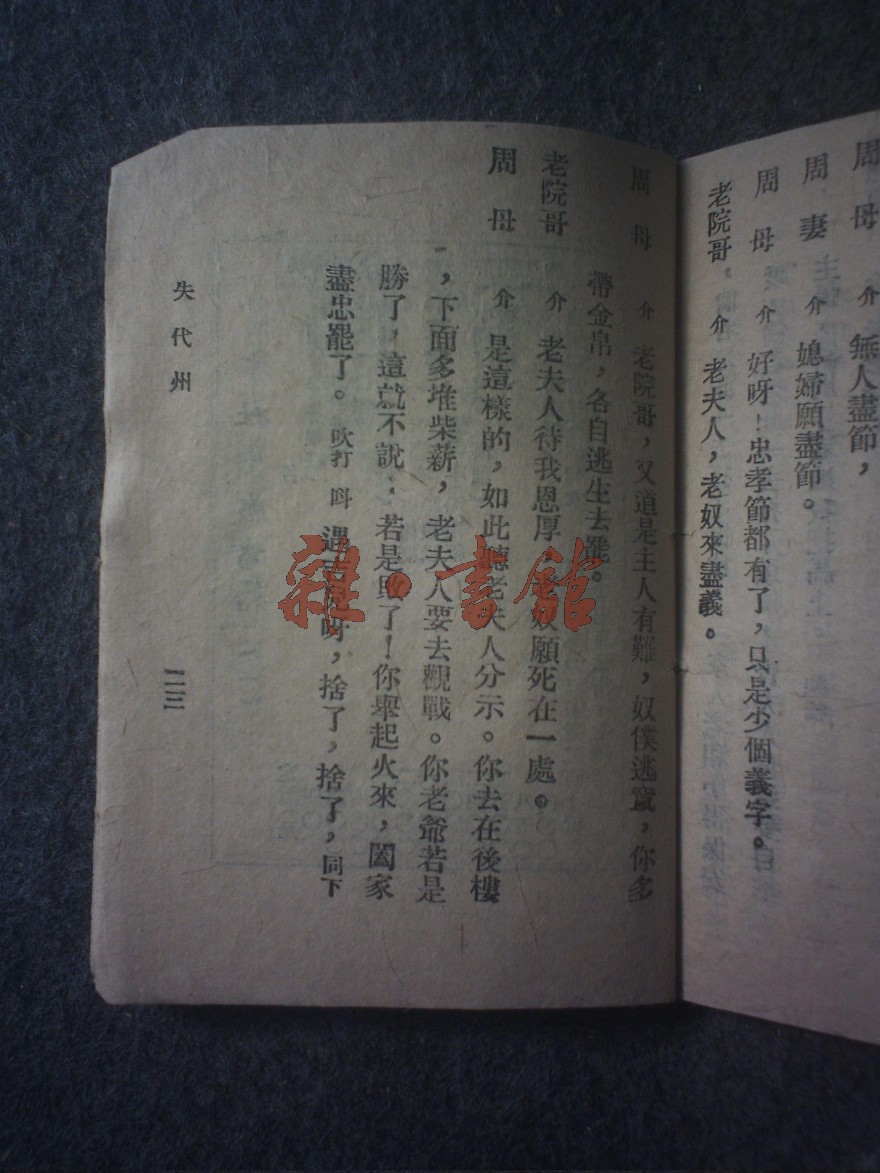 周母 介 無人盡節，
周妻 介 媳婦願盡節。
周母 介 好呀！忠孝節都有了，只是少個義字。
老院哥， 介 老夫人，老奴來盡義。
周母 介 老院哥，又道是主人有難，奴僕逃竄，你多
帶金帛，各自逃生去罷。
老院哥 介 老夫人待我恩厚 願死在一處。
周母 介 是這樣的，如此聽老夫人分示。你去在後樓
，下面多堆柴薪，老夫人要去觀戰。你老爺若是
勝了，這就不說；若是敗了！你舉起火來，闔家
盡忠罷了。吹打 呀，捨了，捨了，同下
失代州
二三
雜·書館